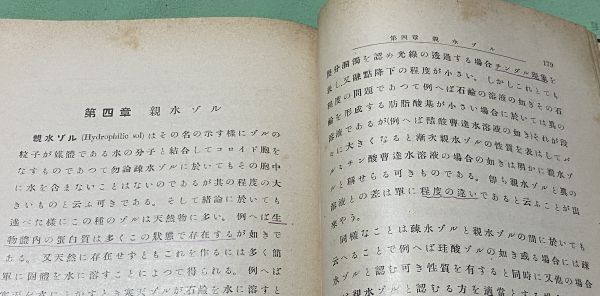 第四章 親水ゾル
親水ゾル (Hydrophilic sol) はその名の示す様にゾルの
粒子が媒體である水の分子と結合してコロイド胞を
なすものであつて勿論疎水ゾルに於いてもその胞中
に水を含まないことはないのであるが其の程度の大
きいものと云ふ可きである。そして緒論に於いても
述べた様にこの種のゾルは天然物に多い。例へば生
物體內の蛋白質は多くこの狀態で存在するが如きで
ある。又天然に存在せずともこれを作るには多く簡
單に固體を水に溶すことによつて得られる。例へば
第四章 親水ゾル
179
幾分溷濁を認め光線の透過する場合チンダル現象を
表し又凝點降下の程度が小さい。しかしこれとても
程度の問題であつて例へば石鹼の溶液の如きその石
鹼を形成する肪脂酸基が小さい場合に於いては眞の
溶液であるが(例へば醋酸曹達水溶液の如き)それが段
々に大きくなると漸次親水ゾルの性質を表はしてパ
ルミチン酸曹達水溶液の場合の如きは明かに親水ゾ
ルと稱せらる可きものである。卽ち親水ゾルと眞の
溶液との差は單に程度の違いであると云ふことが出
來やう。
同樣なことは疎水ゾルと親水ゾルの間に於いても
云へることで例へば珪酸ゾルの如き或る場合には疎
水ゾルと認む可き性質を有すると同時に又他の場合